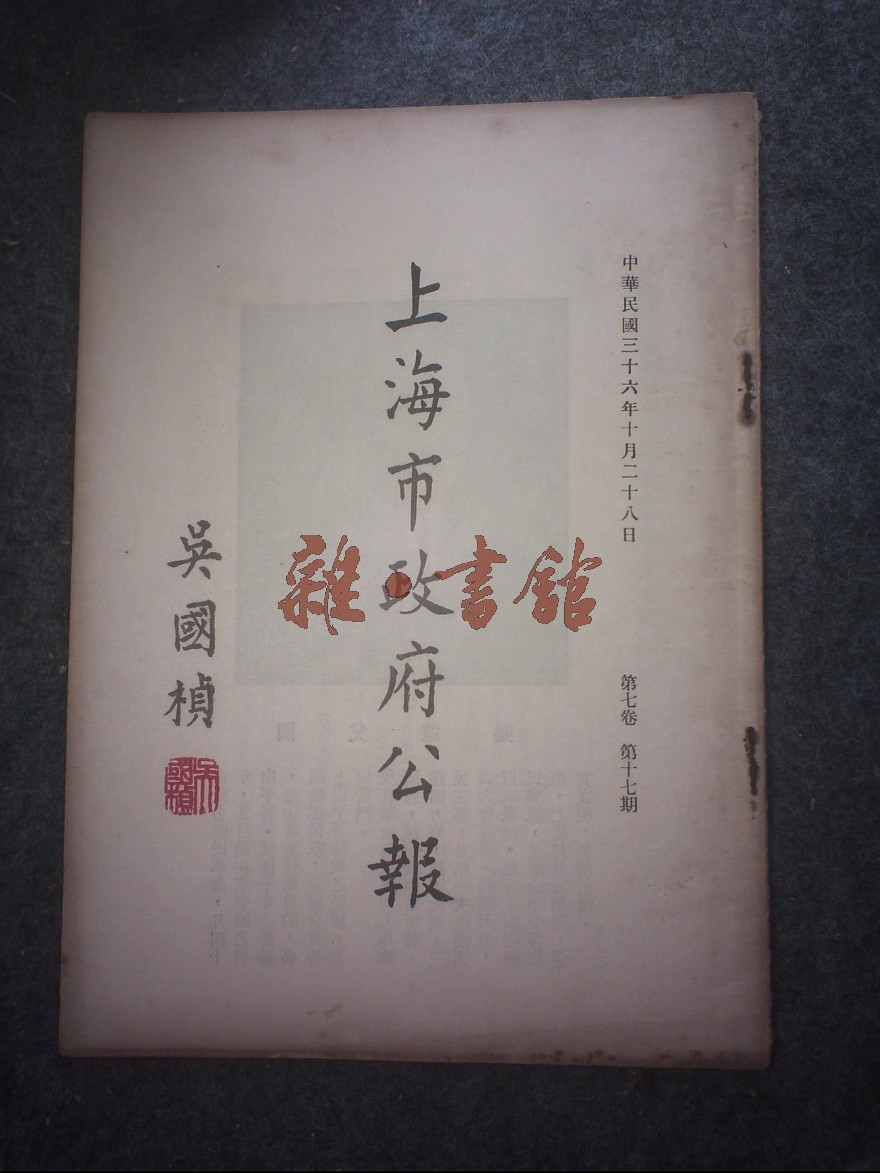 中華民國三十六年十月二十八日
第七卷 第十七期
上海市政府公報
吳國楨
吳國楨
雜·書館